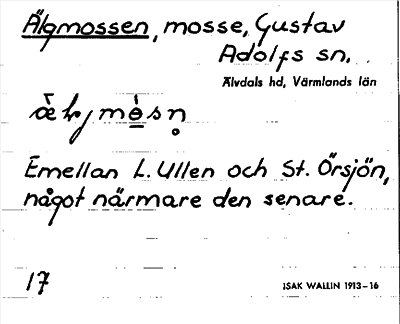 Älgmossen, mosse, Gustav
Adolfs sn.
Älvdals hd, Värmlands län
Emellan L. Ullen och St. Örsjön,
något närmare den senare.
17
ISAK WALLIN 1913–16